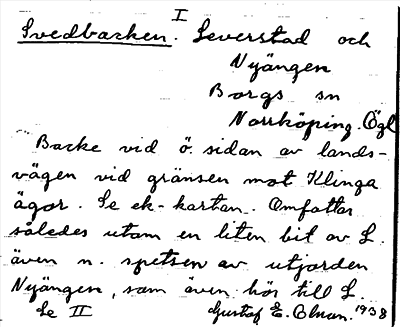 I
Svedbacken. Leverstad och
Nyängen
Borgs sn
Norrköping. Ögl
Backe vid ö. sidan av lands-
vägen vid gränsen mot Klinga
ägor. Se ek-kartan. Omfattar
således utom en liten bit av L.
även n. spetsen av utjorden
Nyängen, som även hör till L.
Se II Gustaf E. Olsson. 1938